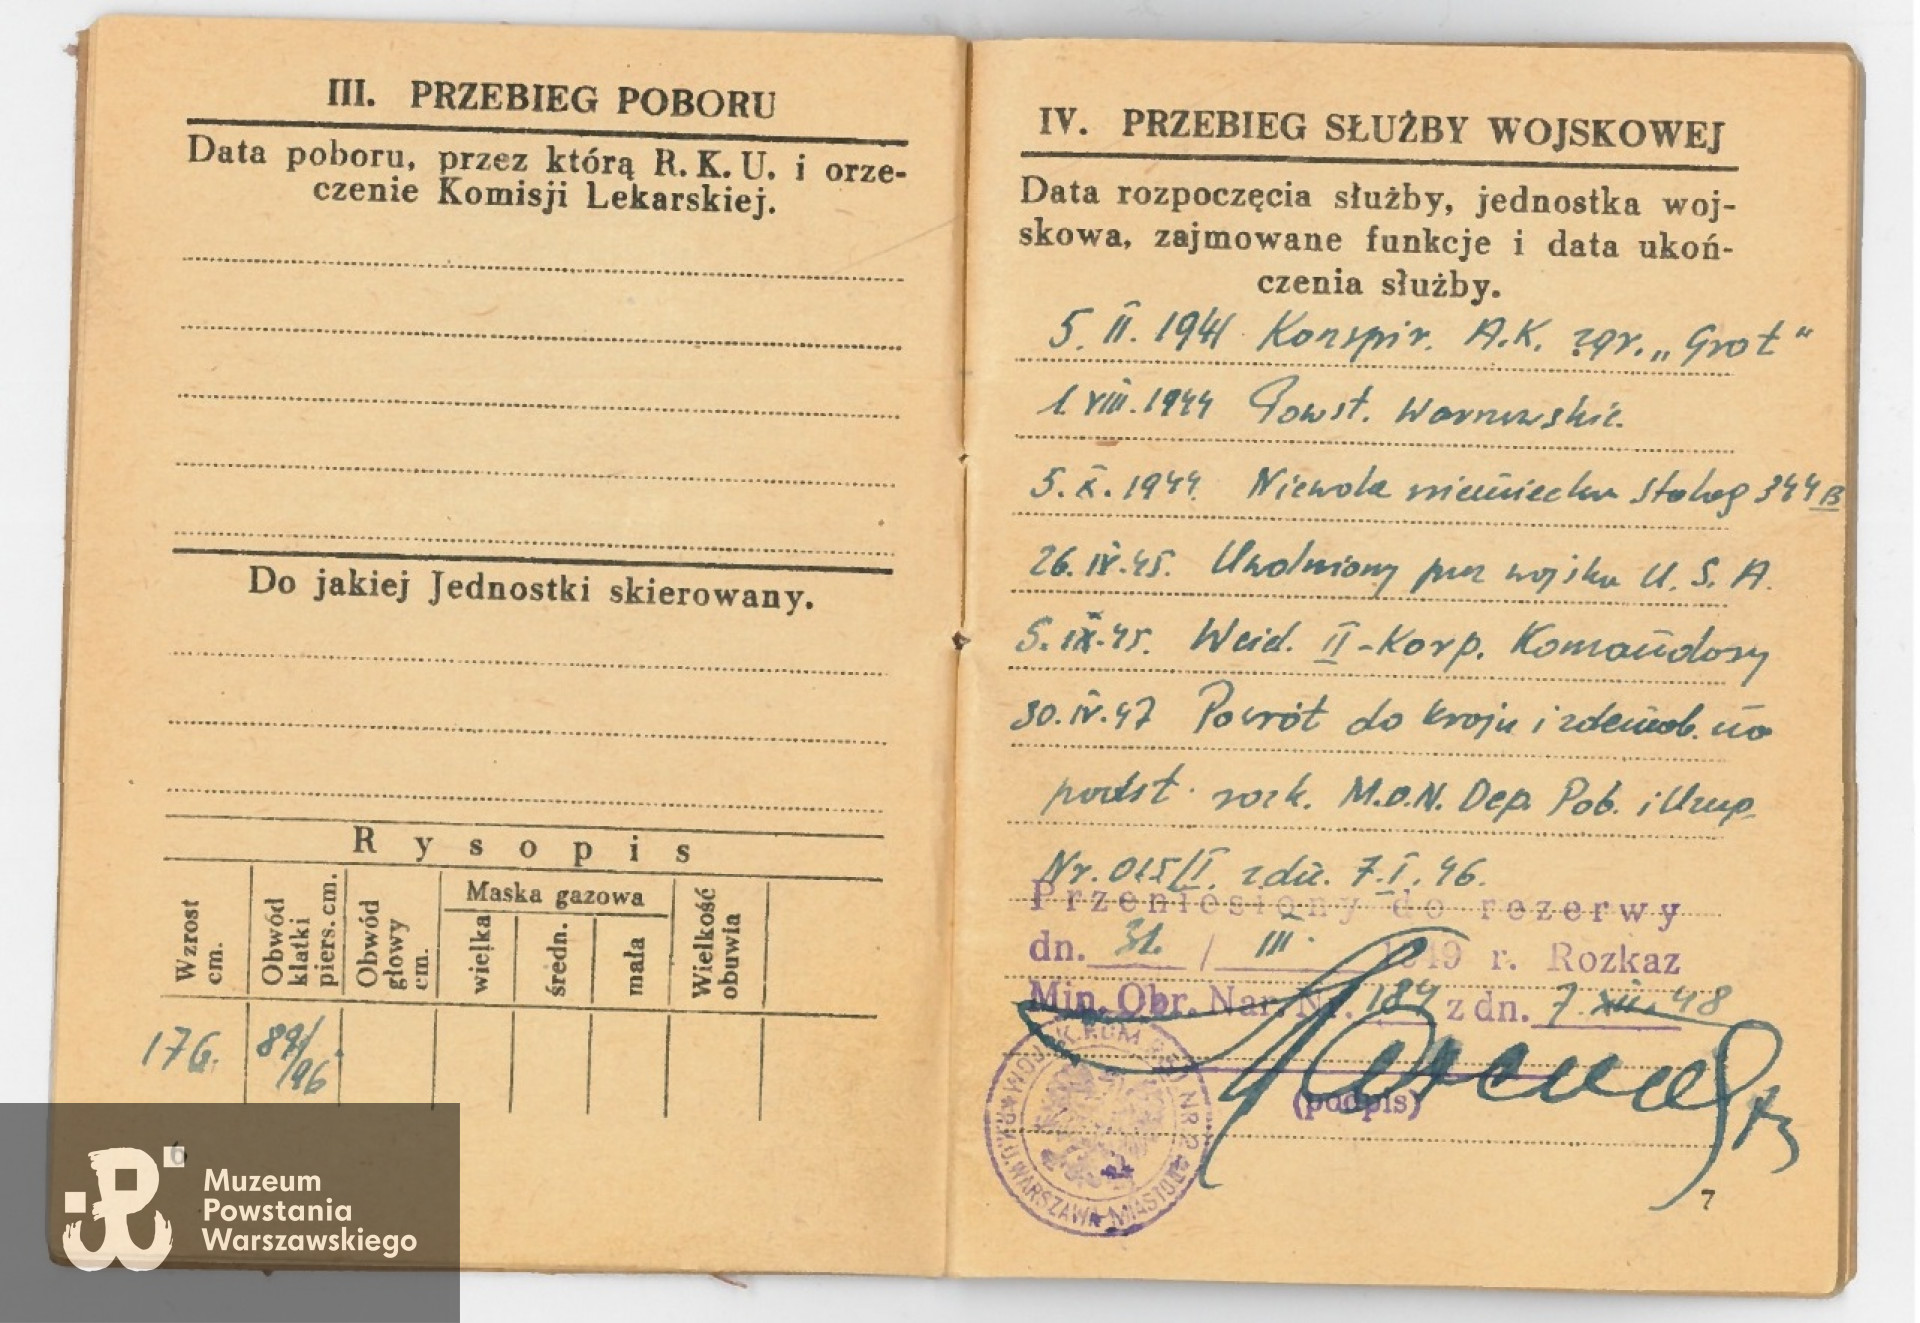 III. PRZEBIEG POBORU
Data poboru, przez którą R. K. U. i orze-
czenie Komisji Lekarskiej.
Do jakiej Jednostki skierowany.
Rysopis
Wzrost cm.
Obwód klatki piers. cm.
Obwód głowy cm.
Maska gazowa
wielka
średn.
mała
Wielkość obuwia
176.
89/96
6
Muzeum
Powstania
Warszawskiego
IV. PRZEBIEG SŁUŻBY WOJSKOWEJ
Data rozpoczęcia służby, jednostka woj-
skowa, zajmowane funkcje i data ukoń-
czenia służby.
5. II. 1941 Konspir. A.K. zgr. „Grot"
1 VIII. 1944 Powst. Warszawskie.
5. X. 1944. Niewola niemiecka Stalag 344 B
26. IV. 45. Uwolniony przez wojska U. S. A.
5. IX. 45. II-Korp. Komandosy
30. IV. 47 Powrót do kraju i zdemob. na
podst. rozk. M.O.N. Dep. Pob. i Uzup.
Nr. 015/I. z dn. 7. I. 46.
Przeniesiony do rezerwy
dn. 31. / III. 1949 r. Rozkaz
Min. Obr. Nar. Nr. 184 z dn. 7. XII. 48
(podpis)
WARSZAWA-MIASTO
7